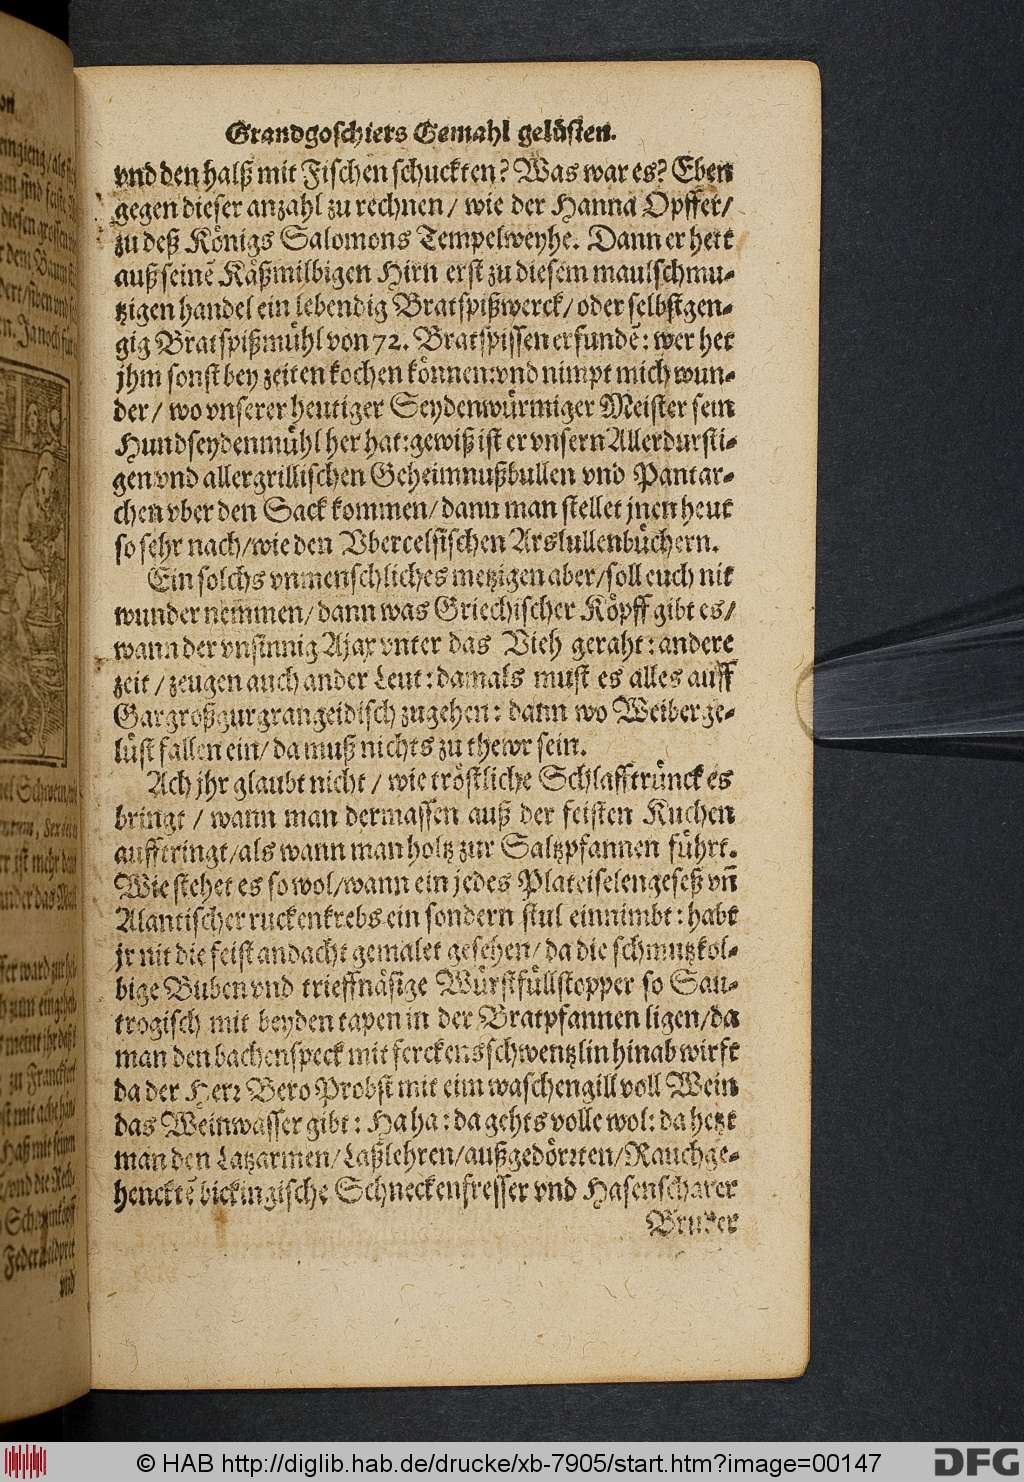 Grandgoschiers Gemahl gelüsten.
vnd den halß mit Fischen schuckten? Was war es? Eben
gegen dieser anzahl zu rechnen / wie der Hanna Opffer/
zu deß Königs Salomons Tempelweyhe. Dann er hett
auß seinẽ Käßmilbigen Hirn erst zu diesem maulschmu-
tzigen handel ein lebendig Bratspißwerck/ oder selbstgen-
gig Bratspißmühl von 72. Bratspissen erfundẽ: wer het
jhm sonst bey zeiten kochen können: vnd nimpt mich wun-
der / wo vnserer heutiger Seydenwürmiger Meister sein
Hundseydenmühl her hat: gewiß ist er vnsern Allerdursti-
gen vnd allergrillischen Geheimnußbullen vnd Pantar-
chen vber den Sack kommen/ dann man stellet jnen heut
so sehr nach/ wie den Vbercelsischen Arslullenbüchern.
Ein solchs vnmenschliches metzigen aber/ soll euch nit
wunder nemmen/ dann was Griechischer Köpff gibt es/
wann der vnsinnig Ajax vnter das Vieh geraht: andere
zeit / zeugen auch ander Leut: damals must es alles auff
Gargroßgurgrangeidisch zugehen: dann wo Weiberge-
lüst fallen ein/ da muß nichts zu thewr sein.
Ach jhr glaubt nicht / wie tröstliche Schlafftrünck es
bringt / wann man dermassen auß der feisten Kuchen
aufftringt/ als wann man holtz zur Saltzpfannen führt.
Wie stehet es so wol/ wann ein jedes Plateiselengeseß vñ
Alantischer ruckenkrebs ein sondern stul einnimbt: habt
jr nit die feist andacht gemalet gesehen/ da die schmutzkol-
bige Buben vnd trieffnäsige Würstfüllstopper so Sau-
trogisch mit beyden tapen in der Bratpfannen ligen/ da
man den bachenspeck mit ferckensschwentzlin hinab wirft
da der Herr Bero Probst mit eim waschengill voll Wein
das Weinwasser gibt: Ha ha: da gehts volle wol: da hetzt
man den Latzarmen/ Laßlehren/ außgedörrten/ Rauchge-
hencktẽ bickingische Schneckenfresser vnd Hasenscharer
Bruder
© HAB http://diglib.hab.de/drucke/xb-7905/start.htm?image=00147
DFG